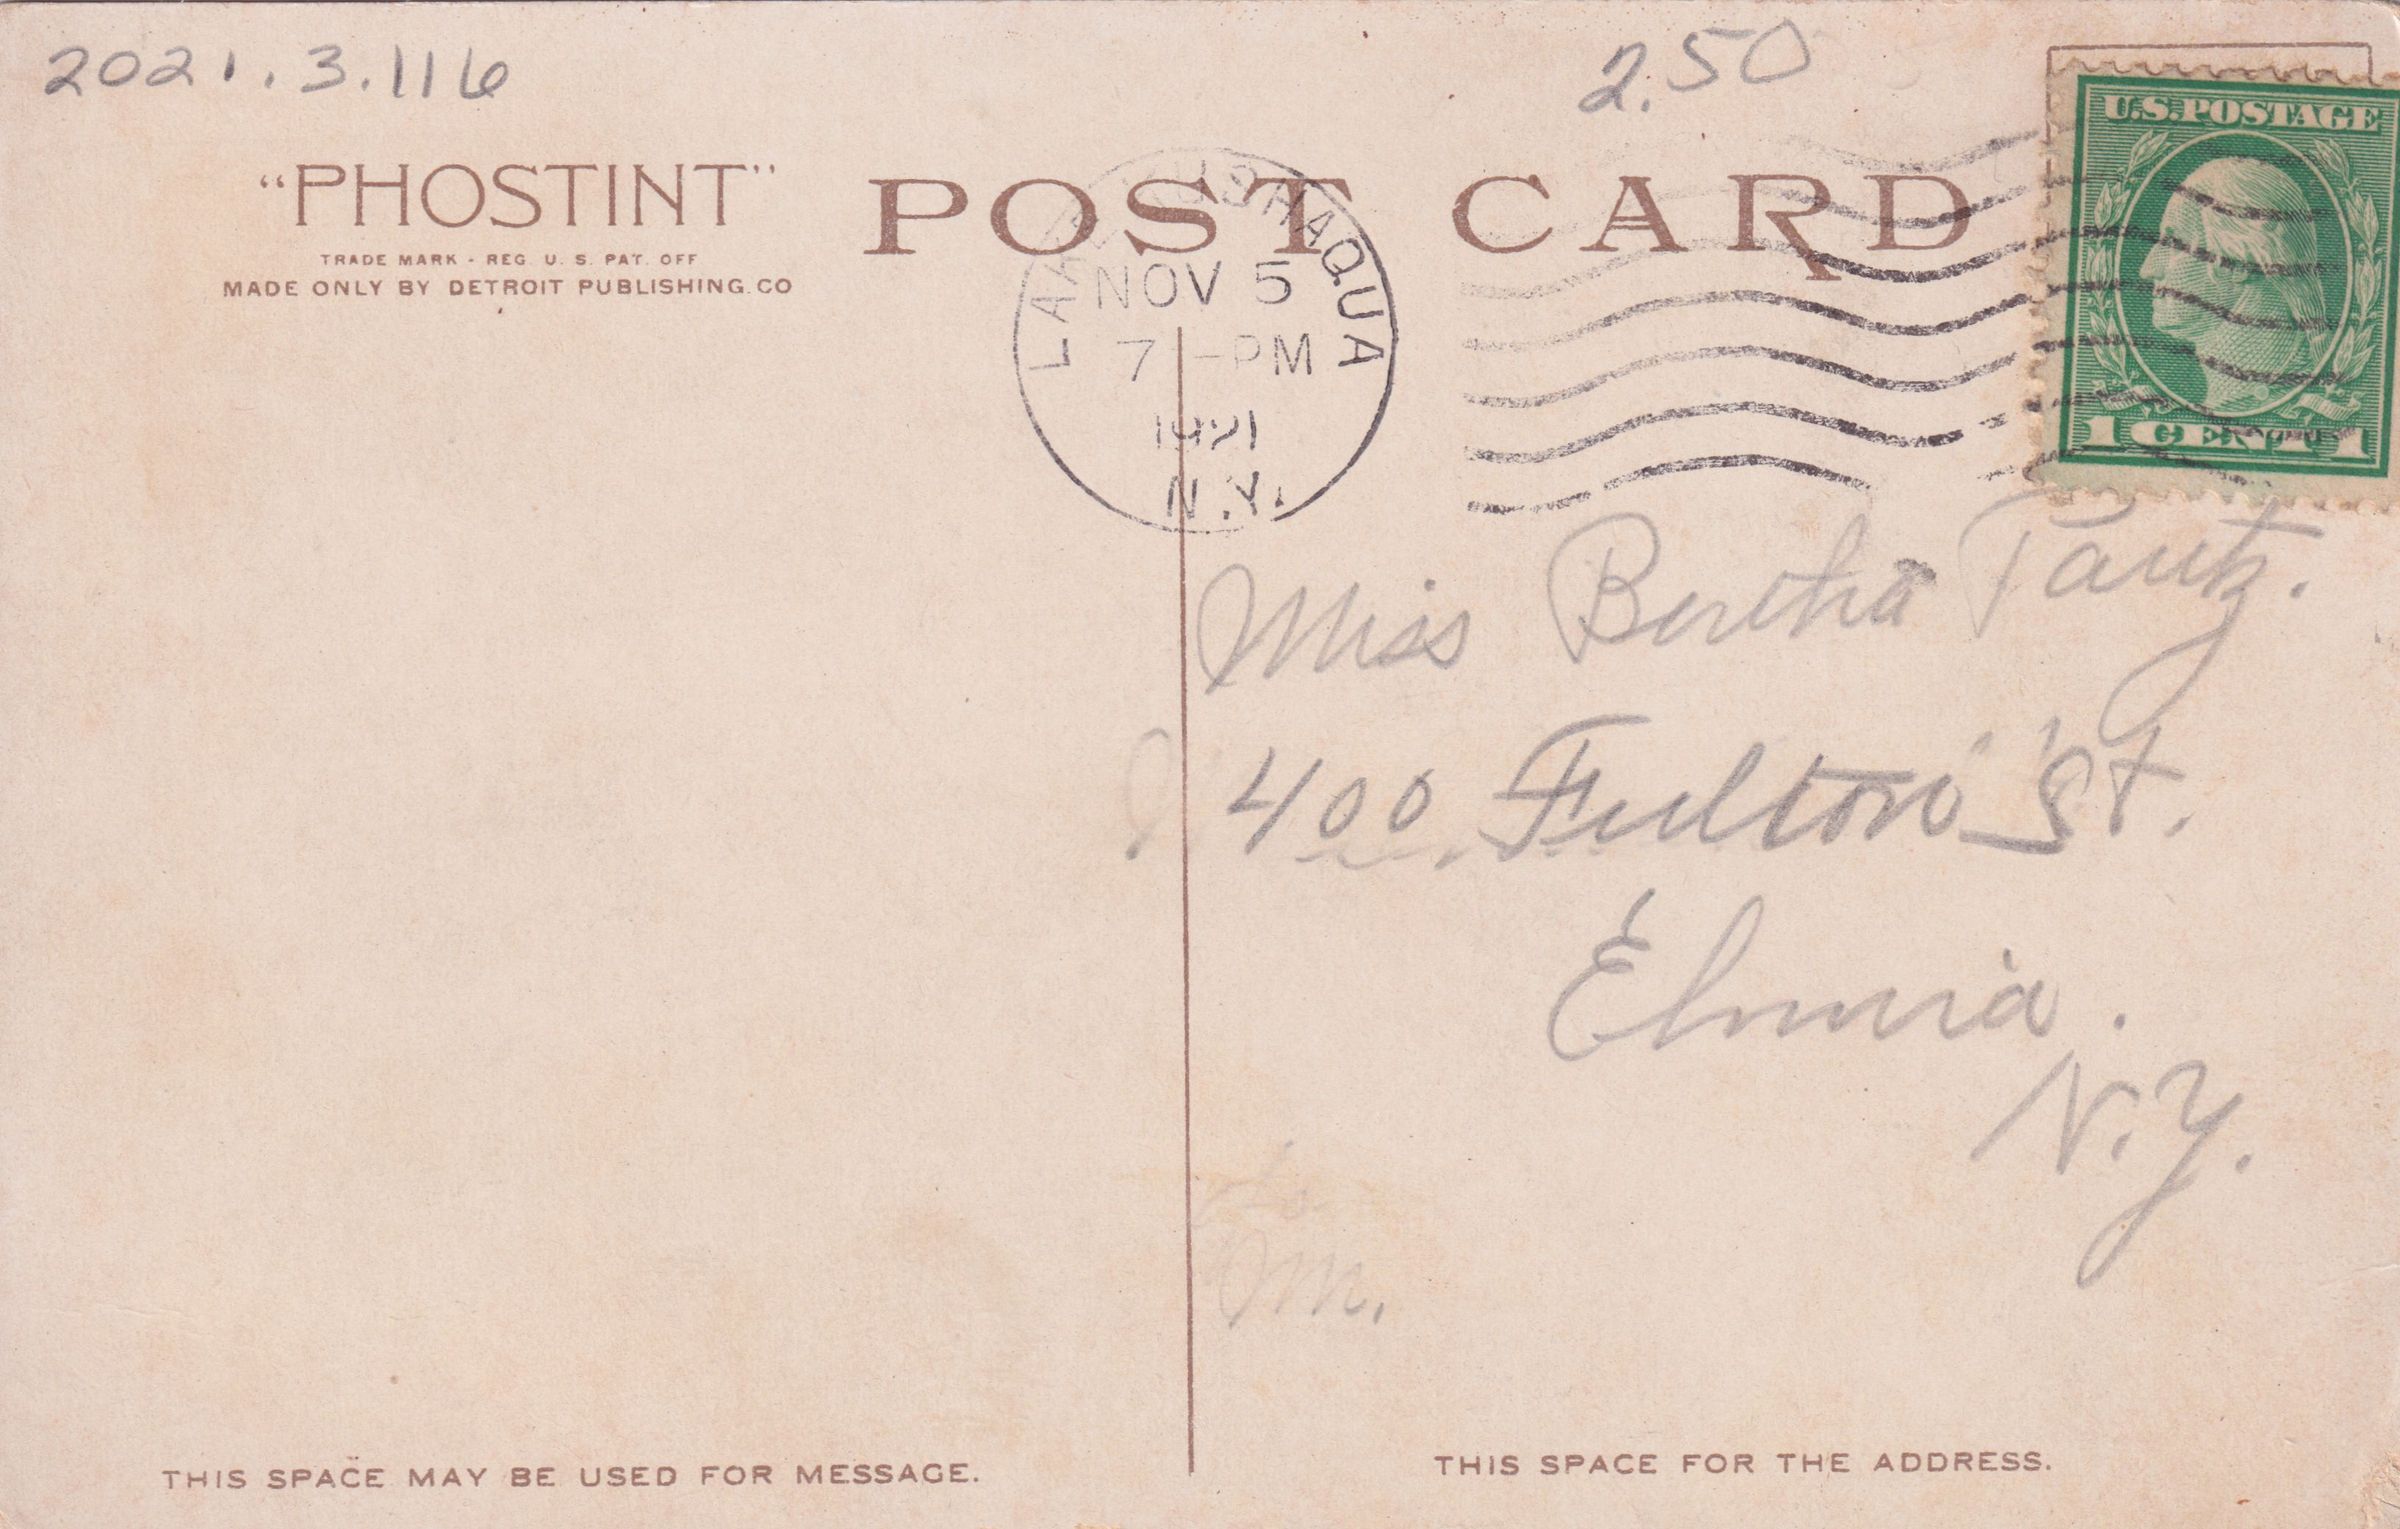 2021.3.116
2.50
U.S. POSTAGE
1 CENT 1
"PHOSTINT"
POST CARD
TRADE MARK - REG. U. S. PAT. OFF
MADE ONLY BY DETROIT PUBLISHING CO
LAKE KUSHAQUA
NOV 5
7 - PM
1921
N.Y.
Miss Bertha Tautz.
400 Fulton St.
Elmira.
N.Y.
M.
THIS SPACE MAY BE USED FOR MESSAGE.
THIS SPACE FOR THE ADDRESS.